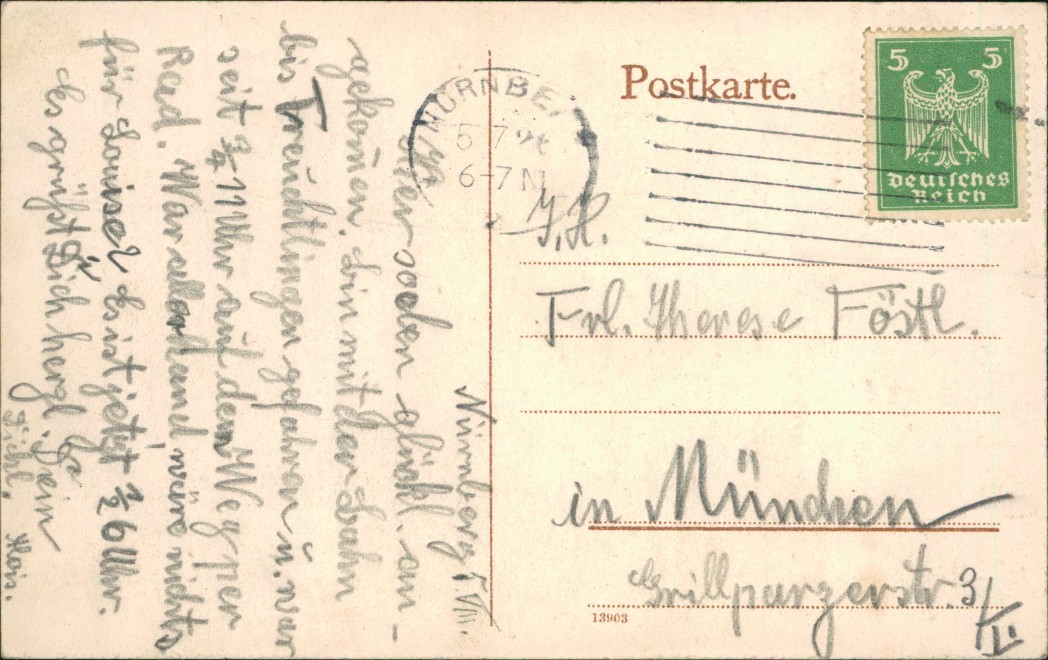 Postkarte.
5 5
Deutsches
Reich
NÜRNBE
5 7 26
6-7 N
I. H.
Frl. Therese Föstl.
in München
Grillparzerstr. 3/II.
13903
Nürnberg 5. VII.
soeben glückl. an-
gekom̄en, bin mit der Bahn
bis Treuchtlingen gefahren u. war
seit ¾ 11 Uhr auf dem Weg per
Rad. War allerhand, wäre nichts
für Louise! Es ist jetzt ½ 6 Uhr.
Es grüßt Dich herzl.
Dein
Alois.